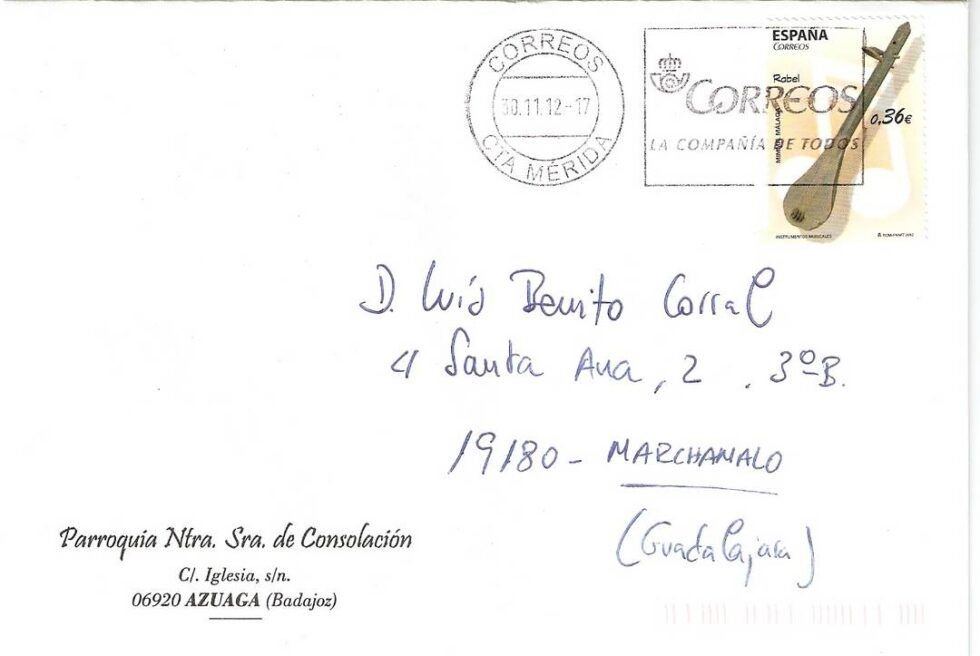 CORREOS
30.11.12-17
CTA MÉRIDA
CORREOS
LA COMPAÑÍA DE TODOS
ESPAÑA
CORREOS
Rabel
0,36€
INSTRUMENTOS MUSICALES
D. Luís Benito Corral
c/ Santa Ana, 2 . 3º B.
19180 - MARCHAMALO
(Guadalajara)
Parroquia Ntra. Sra. de Consolación
C/. Iglesia, s/n.
06920 AZUAGA (Badajoz)